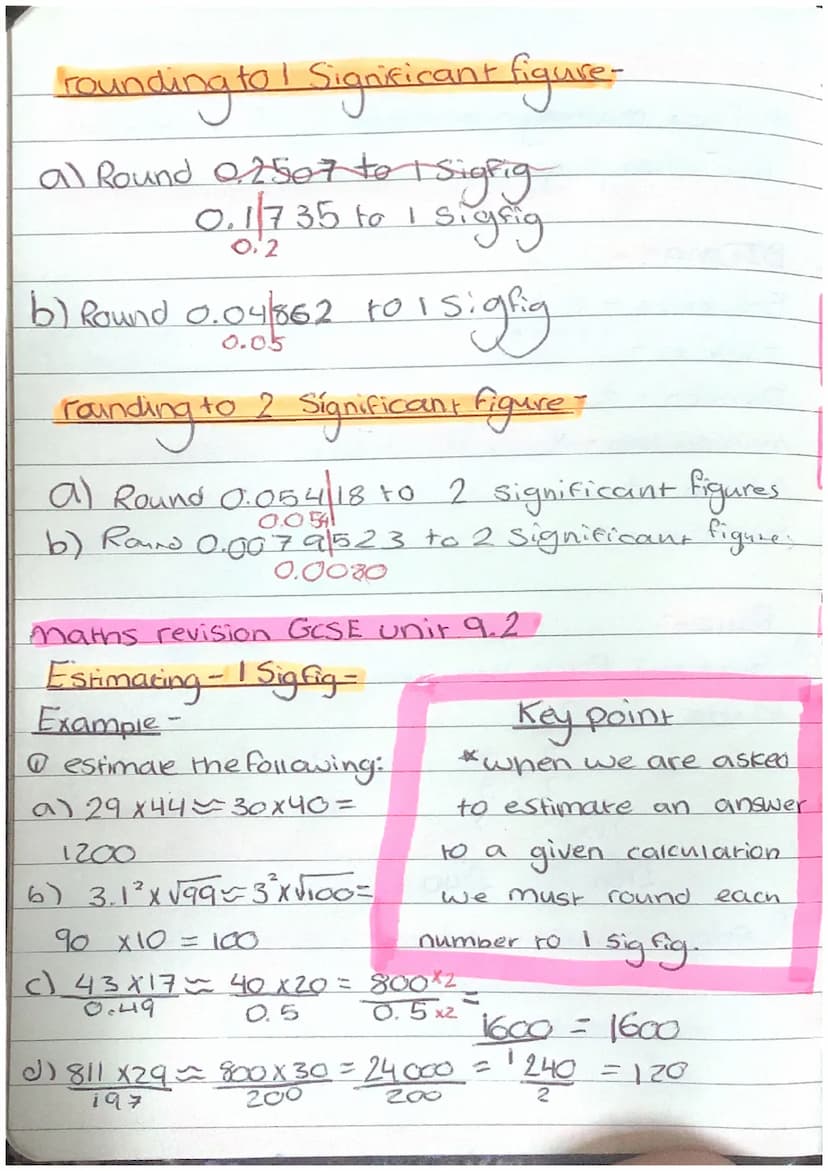 rounding to 1 Significant figure-
a) Round 0.2507 to 1 Sigfig
0.1|735 to 1 sigfig
0.2
b) Round 0.04|862 to 1 Sigfig
0.05
rounding to 2 Significant figure-
a) Round 0.054|18 to 2 significant figures
0.054
b) Round 0.0079|523 to 2 Significant figure.
0.0080
maths revision GCSE unit 9.2
Estimating - 1 Sigfig-
Example-
① estimate the following:
a) 29×44≈30×40=
1200
b) 3.1²×√99≈3²×√100=
90 ×10 = 100
c) 43×17/0.49 ≈ 40×20/0.5 = 800×2/0.5×2 = 1600/1 = 1600
d) 811×29/197 ≈ 800×30/200 = 24000/200 = 240/2 = 120
Key point
*when we are asked
to estimate an answer
to a given calculation
we must round each
number to 1 sigfig.